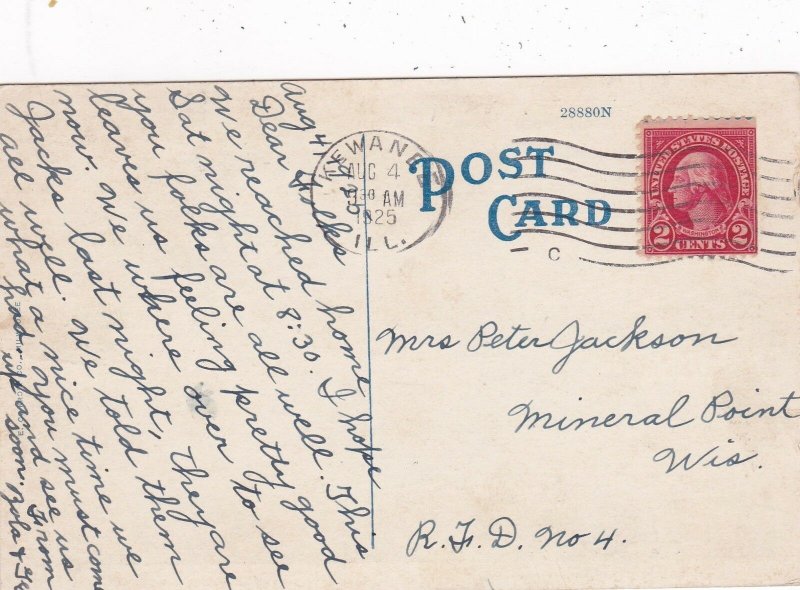 Aug 4, 1925
Dear Folks
We reached home
Sat night at 8:30. I hope
you folks are all well. This
leaves us feeling pretty good
now. We where over to see
Jacks last night, they are
all well. We told them
what a nice time we
had. You must come
up and see us
soon. From
28880N
POST
CARD
KEWANEE
AUG 4
AM
1925
ILL.
C
UNITED STATES POSTAGE
WASHINGTON
2 CENTS 2
Mrs Peter Jackson
Mineral Point
Wis.
R.F.D. No 4.